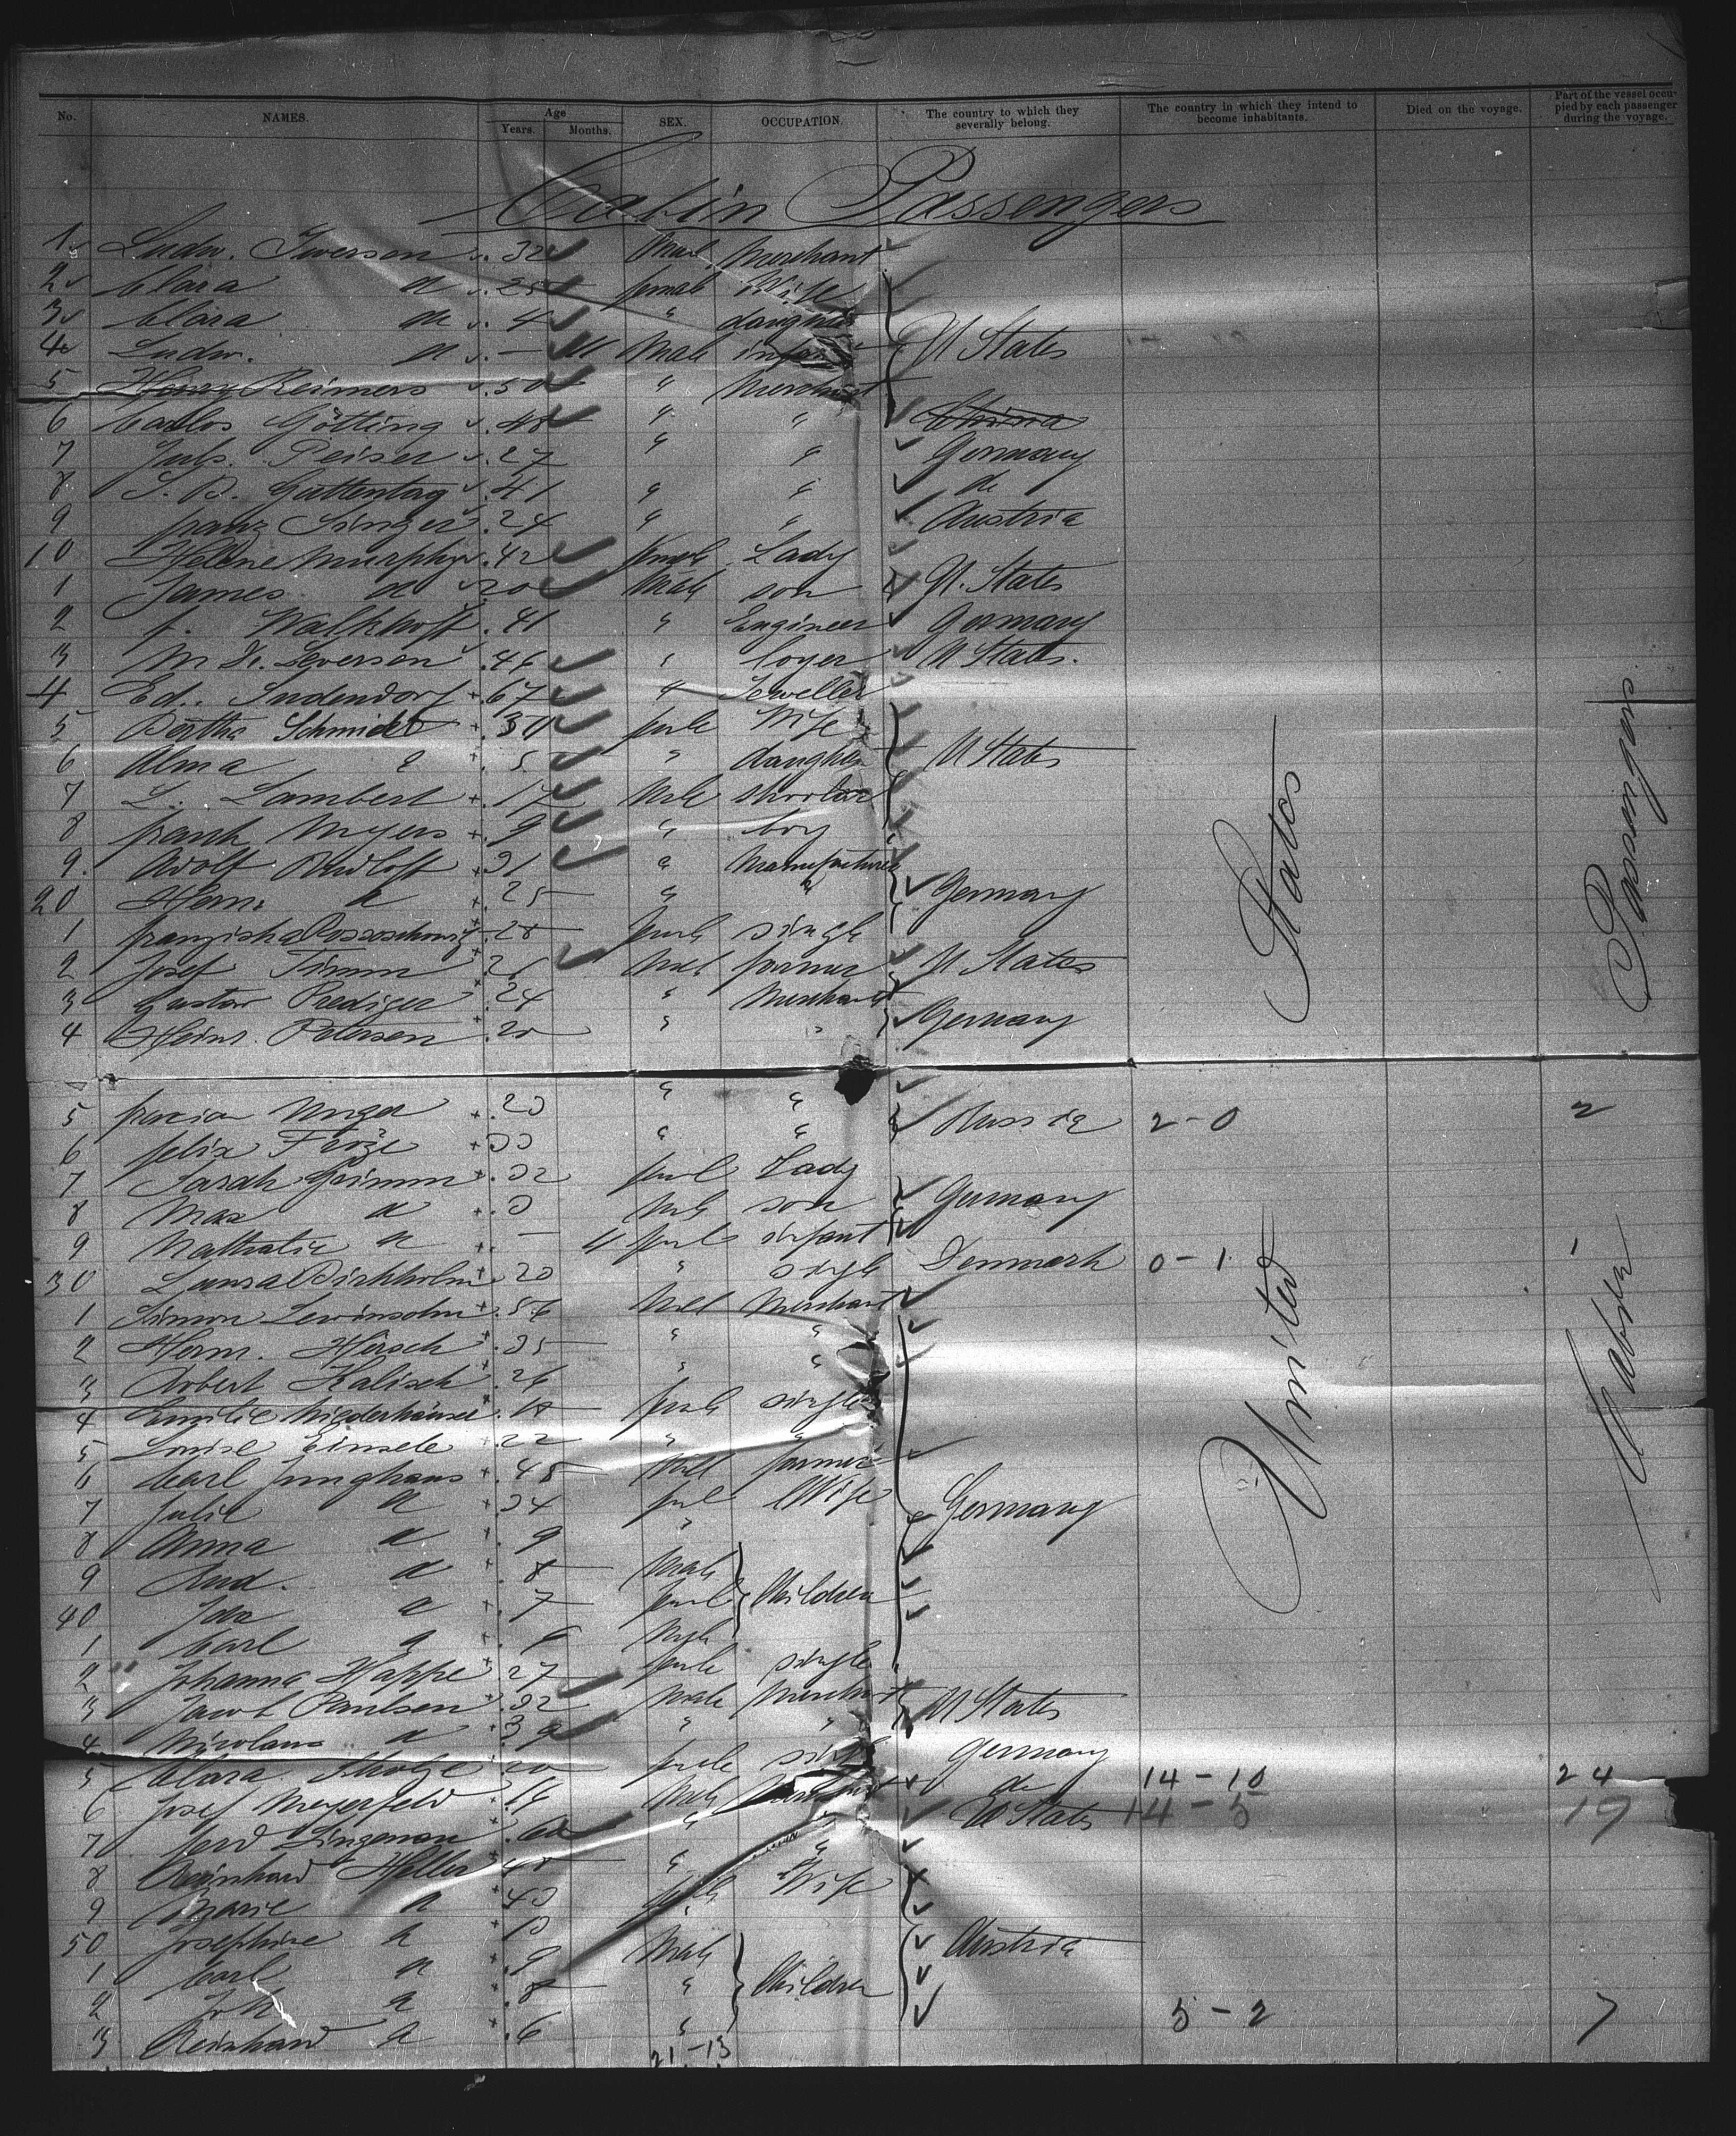 No. NAMES. Age Years. Months. SEX. OCCUPATION. The country to which they severally belong. The country in which they intend to become inhabitants. Died on the voyage. Part of the vessel occupied by each passenger during the voyage.
Cabin Passengers
1 Ludw. Iwersen 32 Male Merchant
2 Clara do 25 female Wife
3 Clara do 4 " daughter
4 Ludw. do — 11 Male infant U States
5 Henry Reimers 50 " Merchant
6 Carlos Götting 48 " " China
7 Juls. Peiser 27 " " Germany
8 S. Guttentag 41 " " do
9 franz Singer 24 " " Austria
10 Helene Murphy 42 female Lady
1 James do 20 Male son U. States
2 f. Walkhoff 41 " Engineer Germany
3 M Leverson 46 " loyer U States.
4 Ed. Sudendorf 67 " Jeweller
5 Bertha Schmidt 30 female Wife
6 Alma 5 " daughter U States
7 L. Lambert 17 Male
8 frank Myers 9 " boy
9 Adolf Rudloff 31 " Manufacturer
20 Herm. do 25 " " Germany
1 franziska 28 female single
2 Josef Timm 26 Male farmer U States
3 Gustav Prediger 24 " Merchant
4 Heinr. Petersen 20 " " Germany
5 Unger 23 " " Russia 2-0 2
6 felix 33 " "
7 Sarah Grimm 32 female Lady
8 Max do 3 Male son Germany
9 Nathalie do — 4 female infant
30 Laura Birkholm 23 " single Denmark 0-1 1
1 Simon Lewinsohn 56 Male Merchant
2 Herm. Hirsch 35 " "
3 Robert Kalisch 26 " "
4 Emilie female single
5 Louise Einsele 22 " "
6 Carl Junghans 45 Male farmer
7 Julie do 34 female Wife Germany
8 Anna do 9 "
9 Rud. do 8 Male
40 Ida do 7 female Children
1 Carl do 6 Male
2 Johanna Happe 27 female single
3 Jacob Paulsen 32 Male Merchant U States
4 Nicolaus do 39 " "
5 Clara female single Germany
6 Josef Meyerfeld 16 Male Merchant do 14-10 24
7 ferd Lingenau " U States 14-5 19
8 Reinhard Heller 48 " "
9 Marie do 43 female Wife
50 Josephine do "
1 Carl do 9 Male Austria
2 Joh do 8 " Children
3 Reinhard do 6 " 5-2 7
21-13
United States
Cabin Passengers